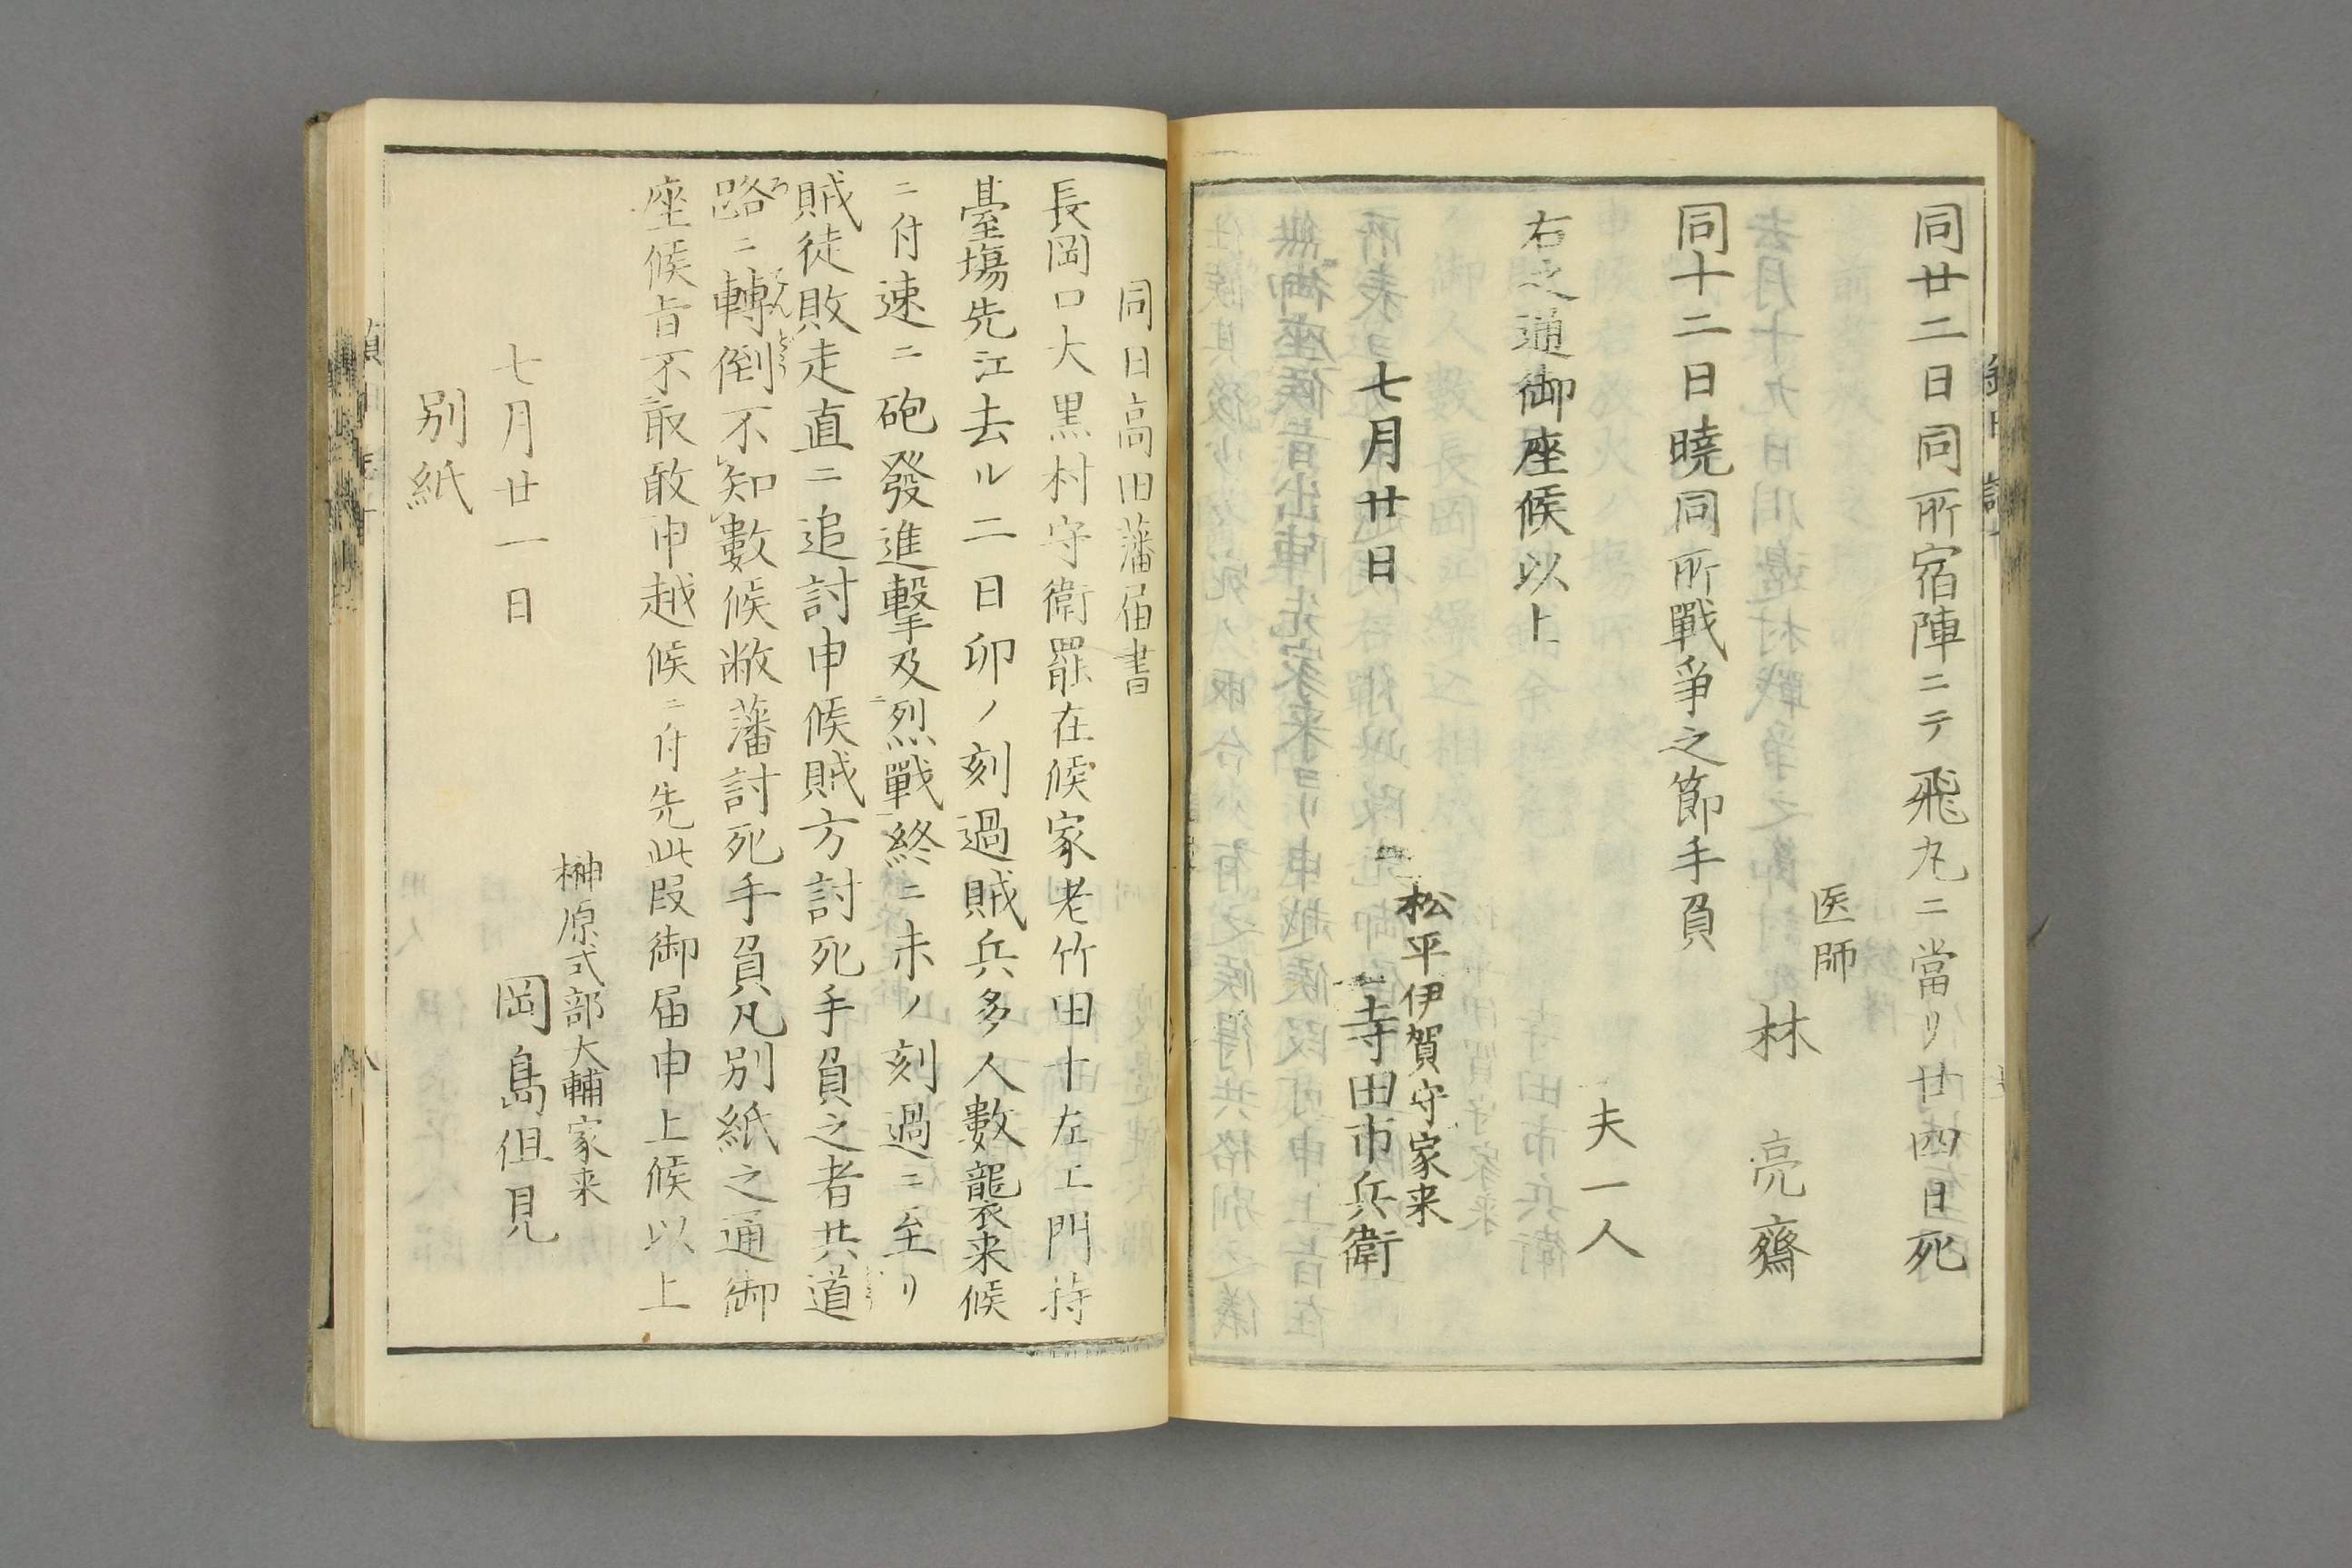 同廿二日同所宿陣ニテ飛丸ニ當リ廿四日死
医師
林亮齋
同十二日曉同所戰爭之節手負
夫一人
右之通御座候以上
松平伊賀守家来
七月廿日
寺田市兵衛
同日高田藩届書
長岡口大黒村守衛罷在候家老竹田十左エ門持
臺塲先江去ル二日卯ノ刻過賊兵多人數襲来候
ニ付速ニ砲發進撃及烈戰終ニ未ノ刻過ニ至リ
賊徒敗走直ニ追討申候賊方討死手負之者共道
路ニ轉倒不知數候敝藩討死手負凡別紙之通御
座候旨不取敢申越候ニ付先此段御届申上候以上
榊原式部大輔家来
七月廿一日
岡島但見
別紙
八